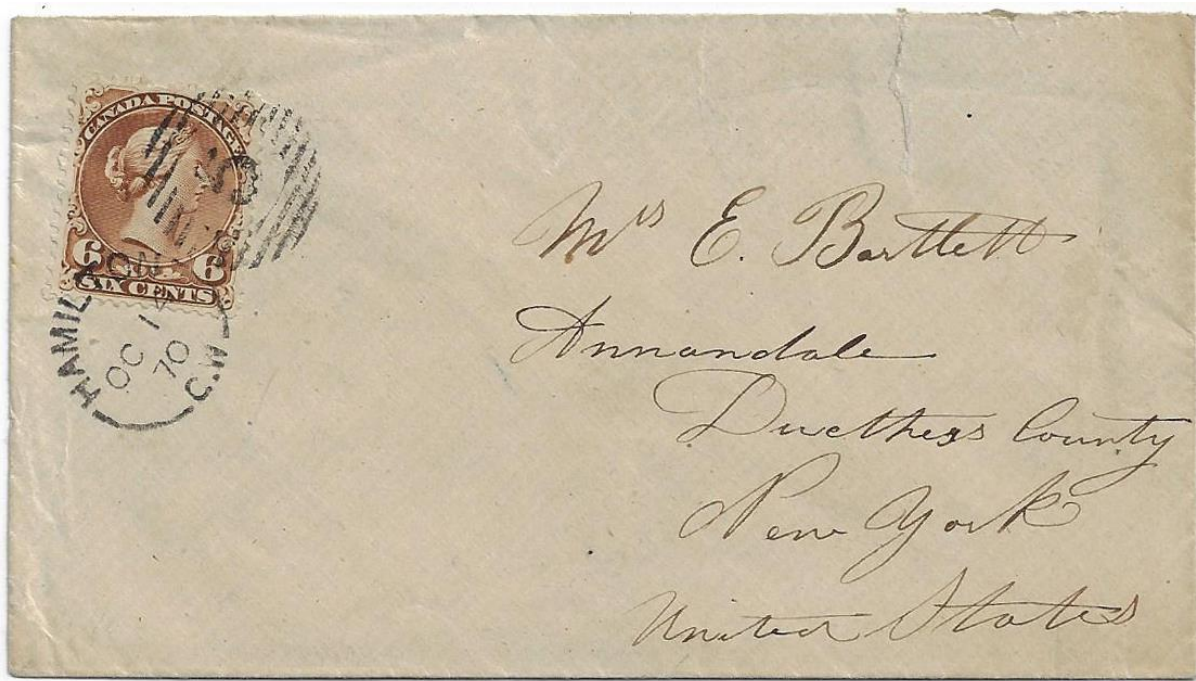 CANADA POSTAGE
6 6
SIX CENTS
HAMILTON
OC 1
70
C.W
Mrs E. Bartlett
Annandale
Ducthess County
New York
United States